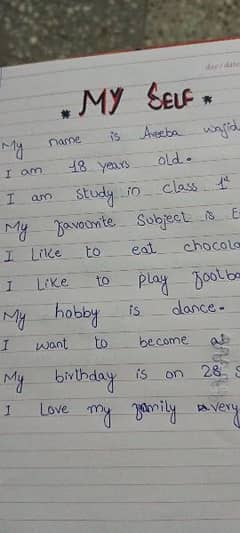 day / date
* MY SELF *
My name is Areeba wajid
I am 18 years old.
I am study in class 1st
My favourite Subject is E
I Like to eat chocola
I Like to play footba
My hobby is dance.
I want to become a
My birthday is on 28 S
I Love my family very